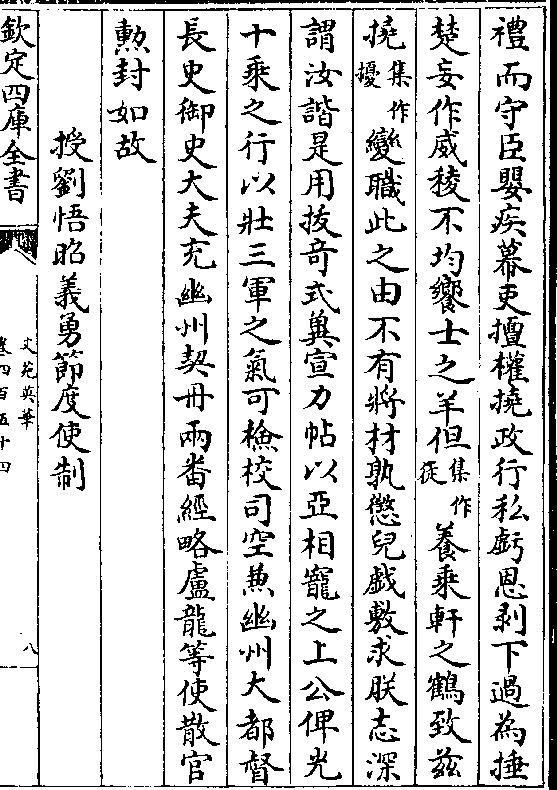 禮而守臣嬰疾幕吏擅權撓政行私虧恩剥下過為捶
楚妄作威稜不均饗士之羊但集作徒養乗軒之鶴致兹
撓集作擾變職此之由不有將材孰懲兒戲敷求朕志深
謂汝諧是用抜竒式兾宣力帖以亞相寵之上公俾光
十乗之行以壯三軍之氣可檢校司空兼幽州大都督
長史御史大夫充幽州契丹兩畨經略盧龍等使散官
勲封如故
授劉悟昭義勇節度使制
欽定四庫全書
文苑英華
卷四百五十四
八